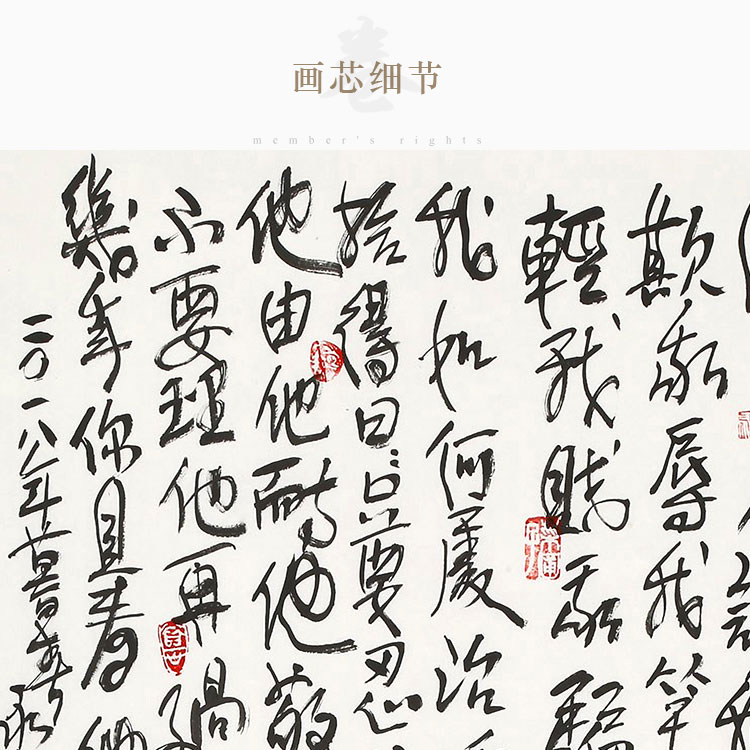 画芯细节
member's rights
欺我辱我笑
輕我賤我騙
我如何處治
拾得曰:只要忍
他由他耐他敬
不要理他再過
幾年你且看他
二〇一八年暮春